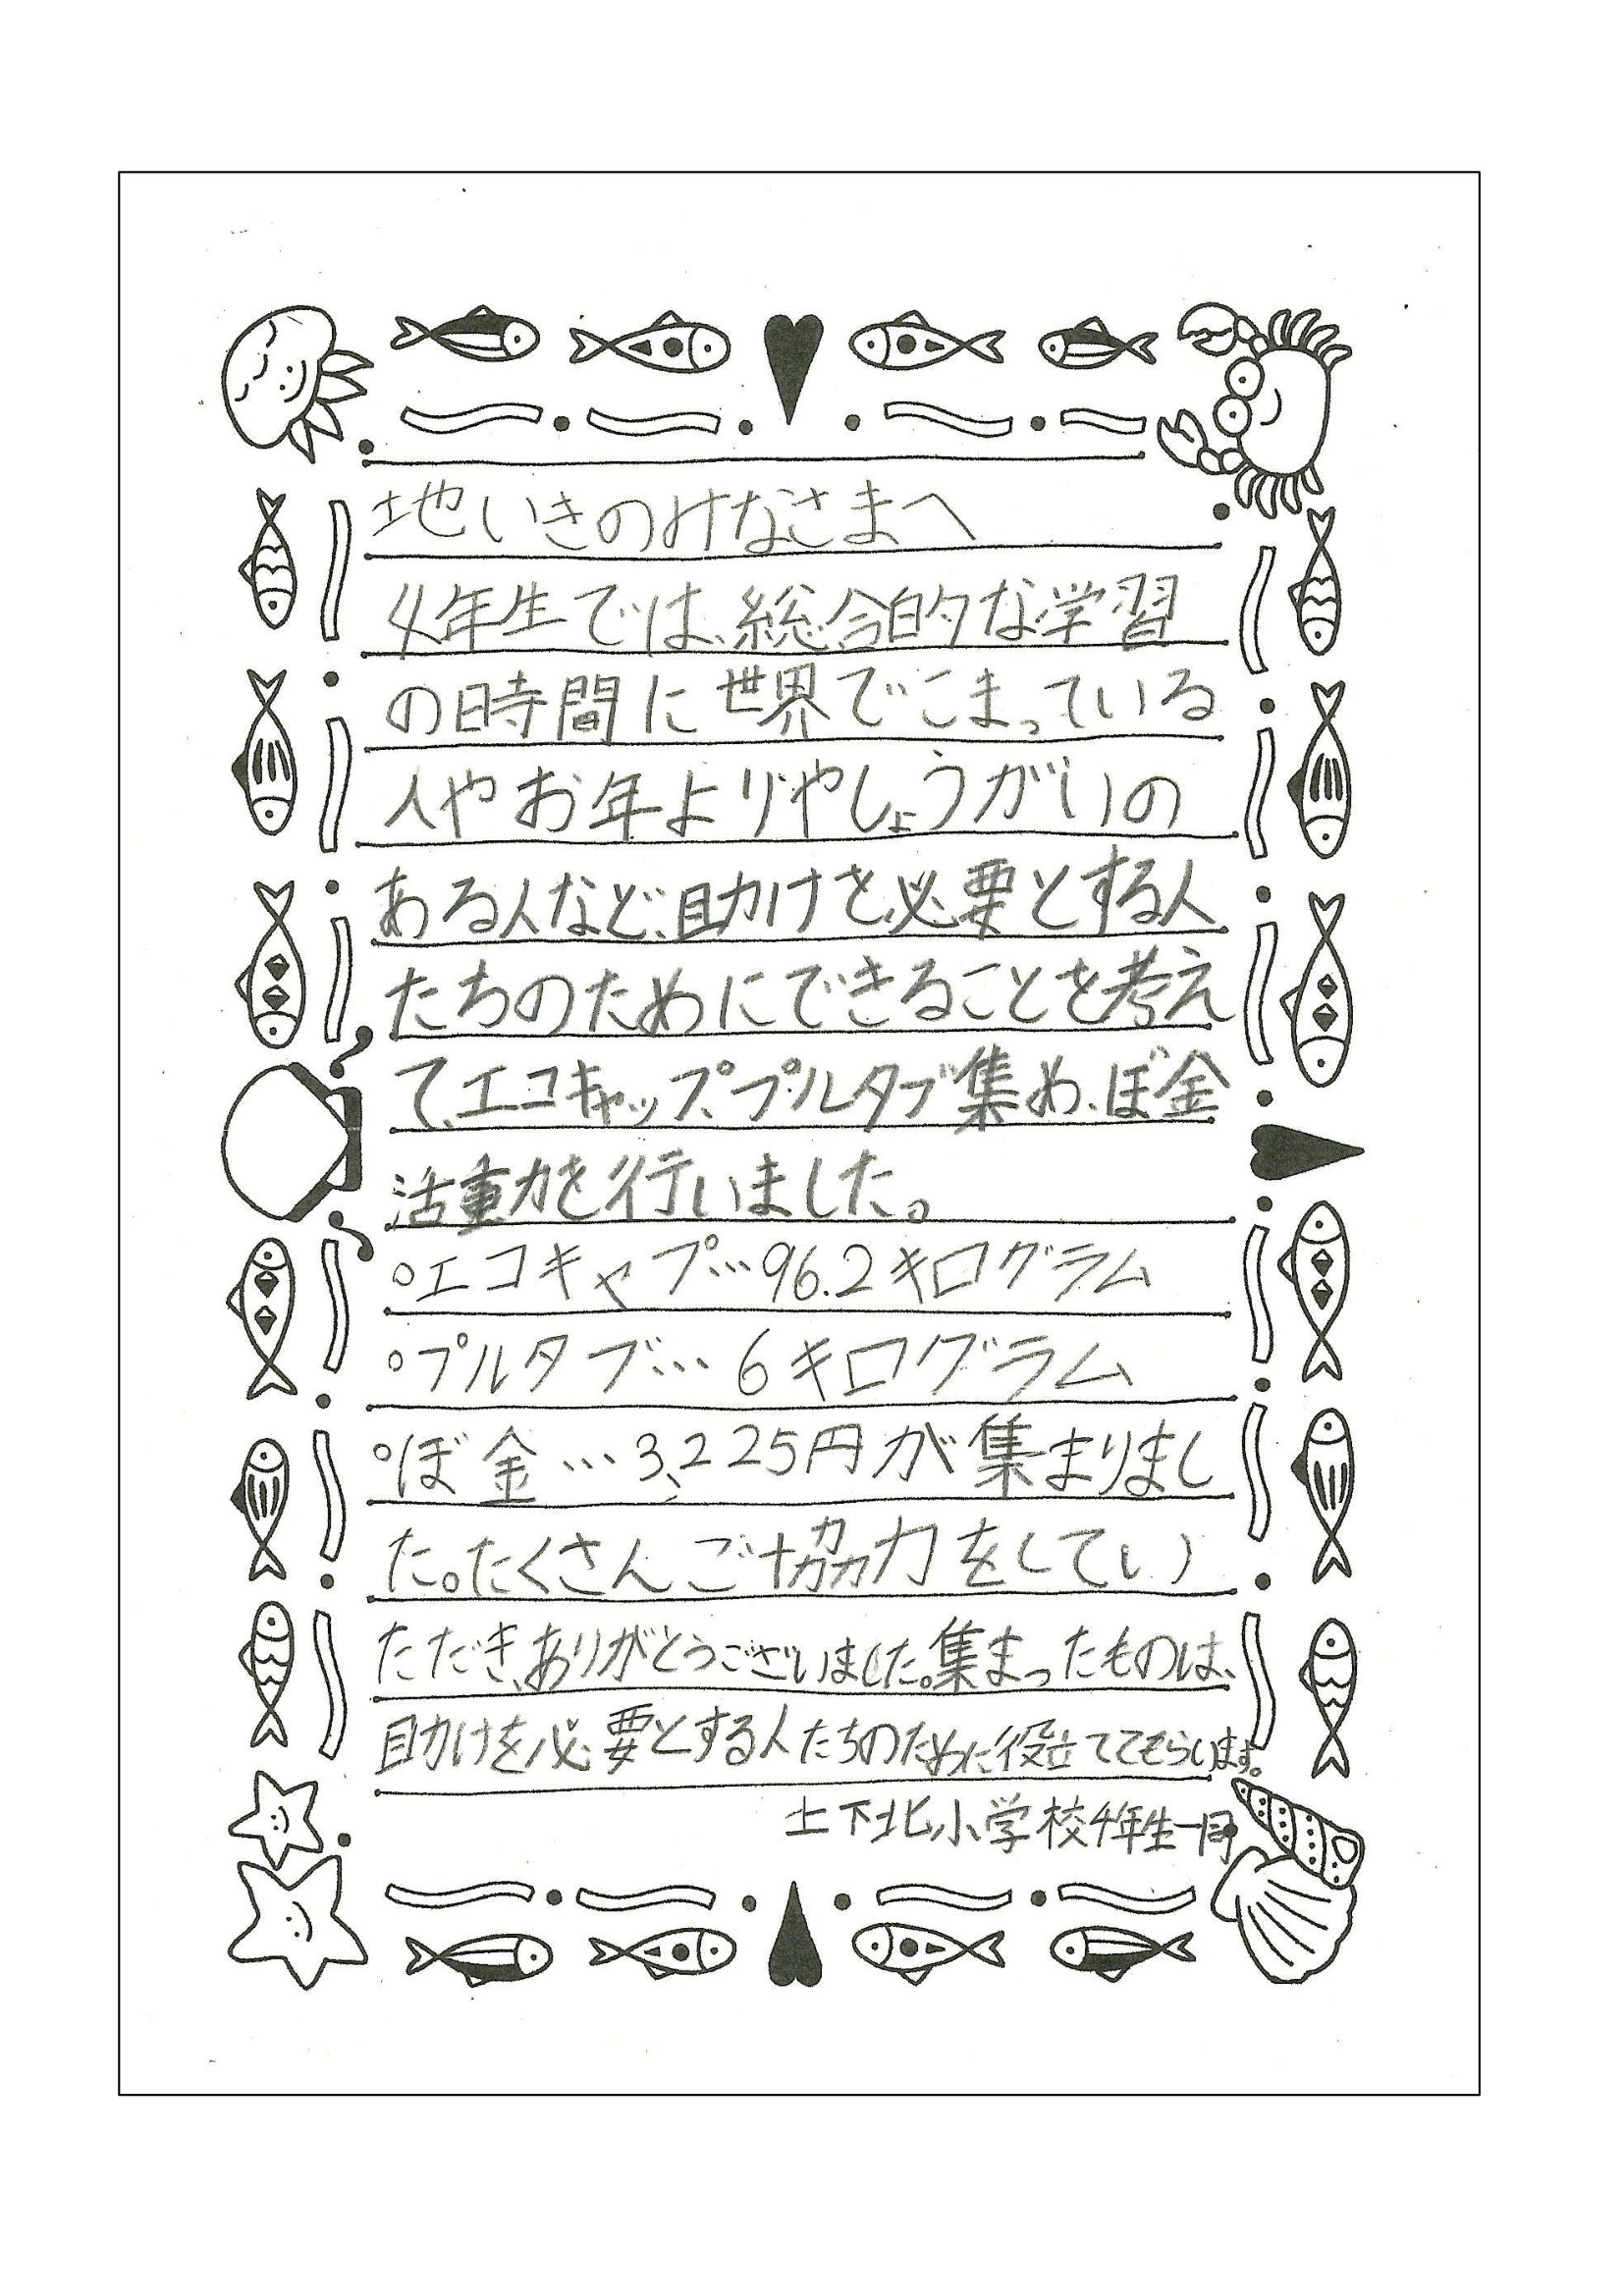 地いきのみなさまへ
4年生では、総合的な学習
の時間に世界でこまっている
人やお年よりやしょうがいの
ある人など、助けを必要とする人
たちのためにできることを考え
て、エコキャップ、プルタブ集め、ぼ金
活動を行いました。
○エコキャプ…96.2キログラム
○プルタブ…6キログラム
○ぼ金…3,225円が集まりまし
た。たくさんご協力をしてい
ただき、ありがとうございました。集まったものは、
助けを必要とする人たちのために役立ててもらいます。
土下北小学校4年生一同